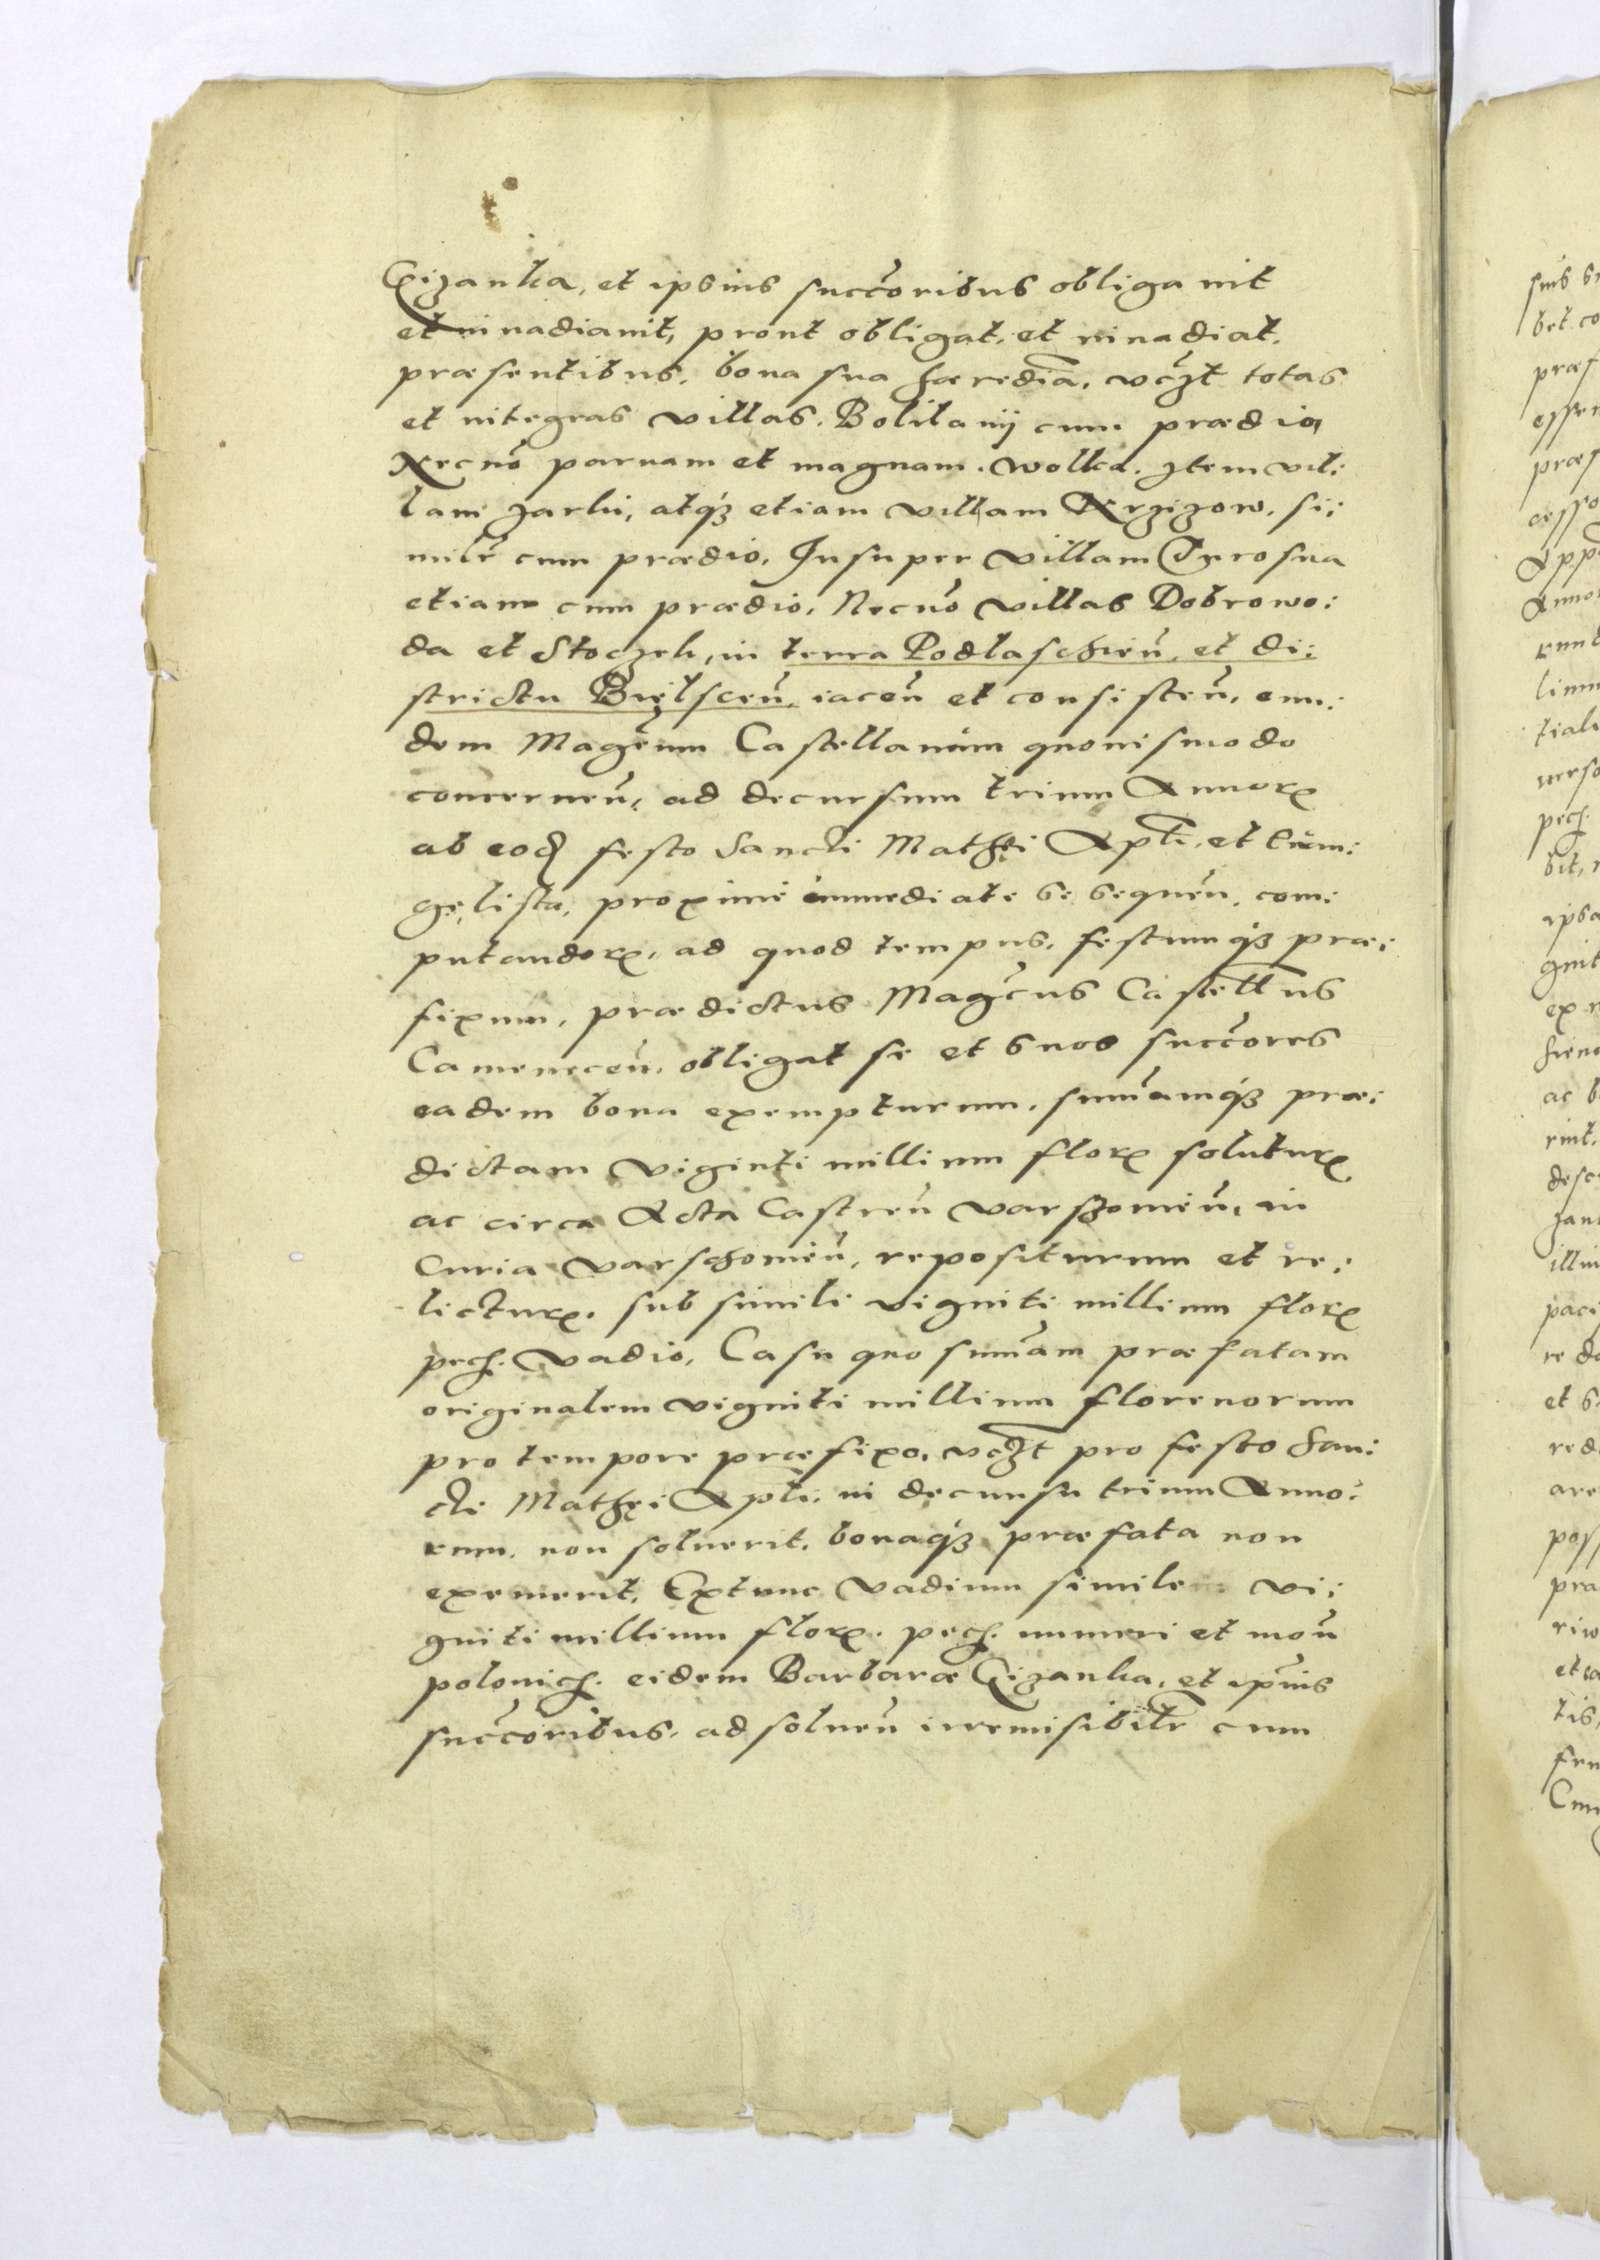 Gizanka, et ipsius succoribus obligavit
et invadiavit, prout obligat, et invadiat,
præsentibus, bona sua hæredia, vczt totas
et integras villas, Bolilanÿ cum prædio,
Necno paruam et magnam. Wolka. Item vil:
lam Zarki, atq3 etiam villam Krzizow, si:
milr cum prædio, Insuper villam
etiam cum prædio, Necno villas Dobrowo:
da et Stoczek, in terra Podlaschien, et di:
strictu Bielscen, iacen et consisten, eun:
dem Magcum Castellanum quouismodo
concernen, ad decursum trium Annorx
ab eod festo Sancti Mathęi Apli, et Euan:
gęlistæ, proxime immediate se sequen, com:
putandorx, ad quod tempus, festumq3 præ:
fixum, prædictus Magcus Castellus
Camenecen, obligat se et suos succores
eadem bona exempturum, summamq3 præ:
dictam viginti millium florx soluturx
ac circa Acta Castren Varschouien, in
Curia Varschouien, repositurum et re:
licturx, sub simili viginti millium florx
pech. vadio, Casu quo summam præfatam
originalem viginti millium florenorum
pro tempore præfixo, vczt pro festo San:
cti Mathęi Apli, in decursu trium Anno:
rum, non soluerit, bonaq3 præfata non
exemerit, Extunc vadium simile vi:
ginti millium florx. pech. numeri et mon
polonich. eidem Barbaræ Gizanka, et ipius
succoribus, ad soluen irremisibilr cum